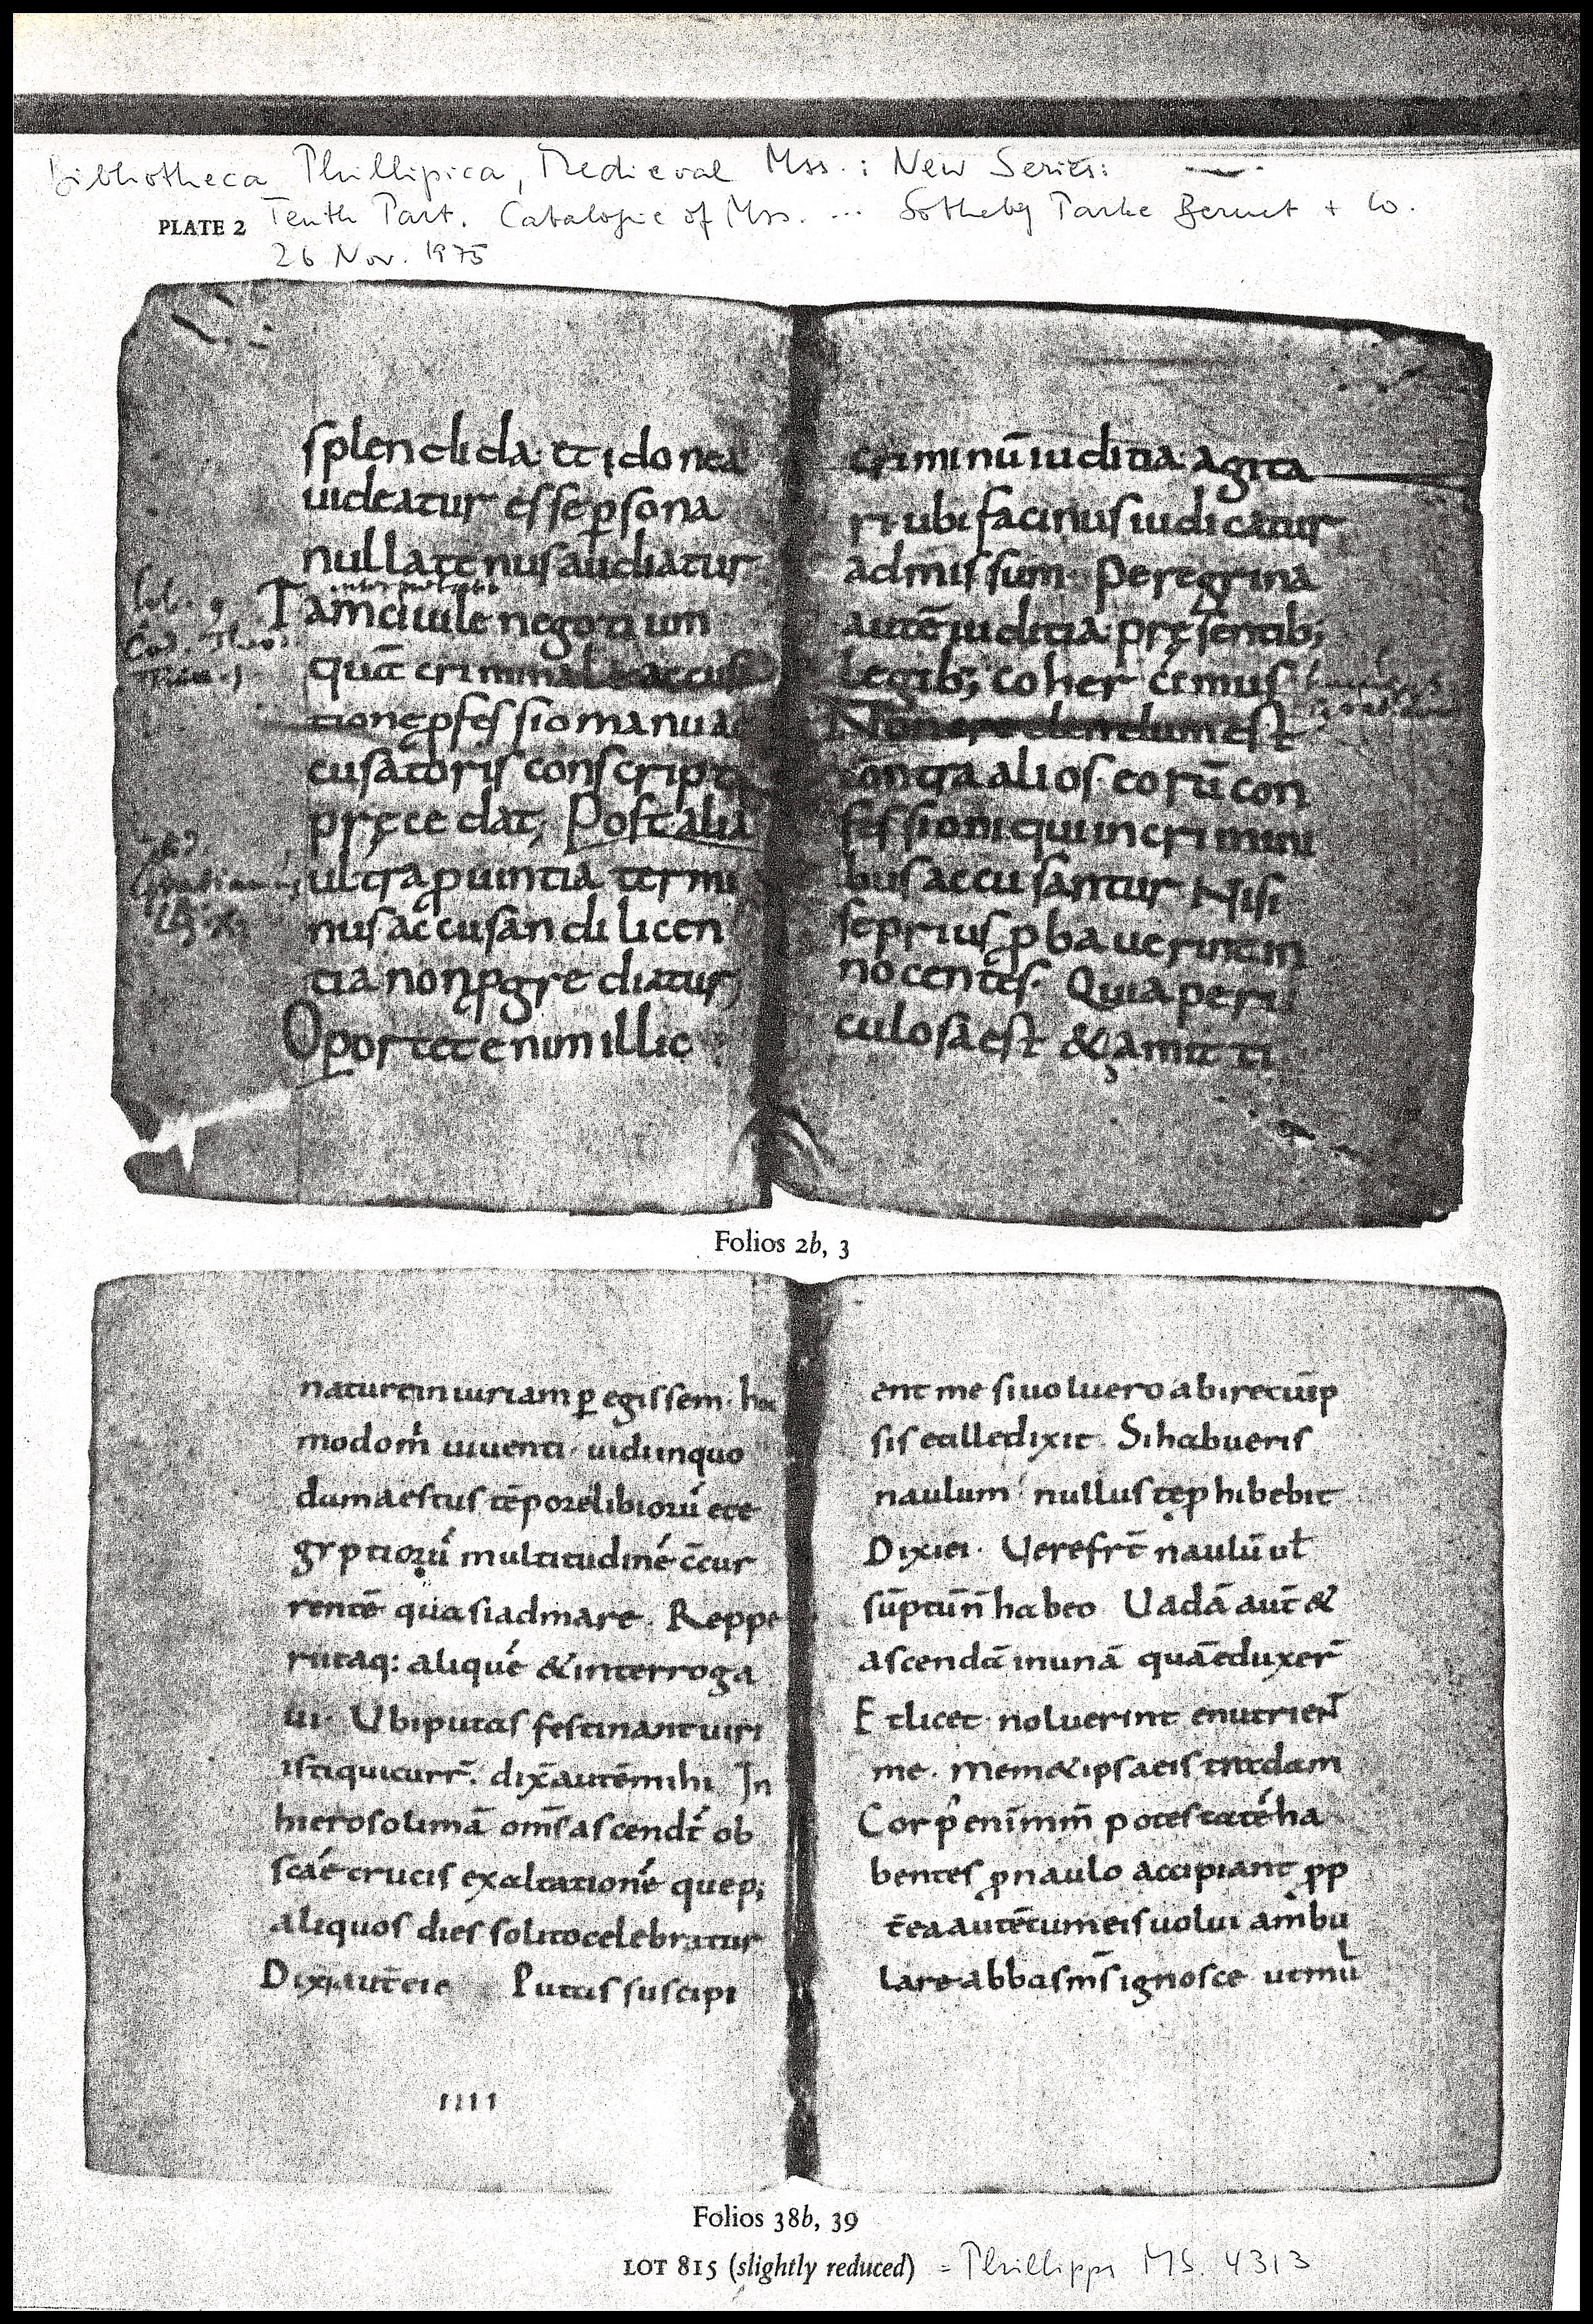 Bibliotheca Phillipica, Medieval Mss.: New Series:
PLATE 2 Tenth Part. Catalogue of Mss. ... Sotheby Parke Bernet + Co.
26 Nov. 1975
splendida et idonea
uideatur esse p̱sona
nullatenus audiatur
interpretatio
Tam ciuile negotium
quā criminale accusa
tionē p̱fessio manu ac
cusatoris conscripta
pręcedat; Post alia
ultra ꝓuintia termi
nus accusandi licen
tia non ꝓgrediatur
Oportet enim illic
criminū iuditia agita
ri ubi facinus iudicatur
admissum Peregrina
autē iuditia pręsentib;
legib; cohercemus
Non credendum est
contra alios eorū con
fessioni qui in crimini
bus accusantur Nisi
se prius ꝓbauerint in
nocentes. Quia peri
culosa est & amitti
Folios 2b, 3
naturę iniuriam p̱egissem. hoc
modo m̄ uiuenti. uidi in quo
dam aestus tēpore libiorū et e
gyptiorū multitudinē c̄cur
rentē quasi ad mare. Reppe
ri itaq: aliquē & interroga
ui. Ubi putas festinant uiri
isti qui curr̄. dix̄ autē mihi In
hierosolimā om̄s ascendt̄ ob
scāe crucis exaltationē que p;
aliquos dies solito celebratur
Dixi aut̄ ei Putas suscipi
IIII
ent me si uoluero abire cū ip
sis et ille dixit Si habueris
naulum nullus te ꝓhibebit
Dixi ei. Uere fr̄t naulū ul̄
sūptū n̄ habeo Uadā aut̄ &
ascendā in unā quā eduxer̄
Et licet noluerint enutrient
me. Mem& ipsa eis tradam
Corp' enim m̄m potestatē ha
bentes ꝓ naulo accipiant ꝓp
t̄ea autē cum eis uolui ambu
lare abbas m̄s ignosce ut mul̄
Folios 38b, 39
LOT 815 (slightly reduced) = Phillipps MS. 4313